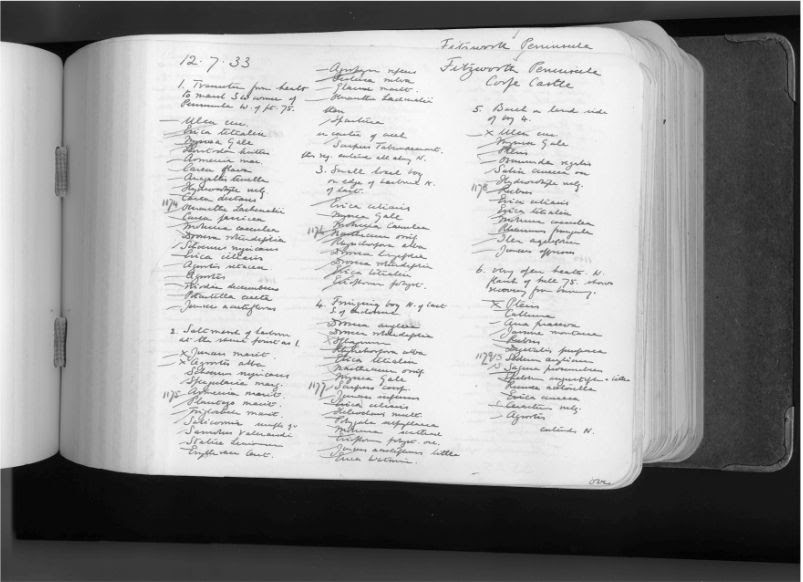 12.7.33
1. Transition from heath
to marsh S.W. corner of
Peninsula W. of pt. 75.
Ulex eur.
Erica tetralix
Myrica Gale
Armeria mar.
Carex flava
Anagallis tenella
Hydrocotyle vulg.
Carex distans
1174 Oenanthe Lachenalii
Carex panicea
Molinia caerulea
Drosera rotundifolia
Schoenus nigricans
Erica ciliaris
Agrostis setacea
Agrostis
Potentilla erecta
Juncus acutiflorus
2. Salt marsh of harbour
at the same point as 1.
x Juncus marit.
x Agrostis alba
Schoenus nigricans
Spergularia marg.
1175 Armeria marit.
Plantago marit.
Triglochin marit.
Salicornia
Samolus Valerandi
Statice
Agropyron
Festuca rubra
Glaux marit.
Oenanthe Lachenalii
then
Spartina
in centre of creek
Scirpus Tabernaemont.
this veg. extends all along N.
3. Small bog
on edge of harbour N.
of last.
Erica ciliaris
Myrica Gale
Molinia caerulea
1176 Narthecium ossif.
Rhynchospora alba
Drosera longifolia
Drosera rotundifolia
Erica tetralix
Erioph. polyst.
4. Fringing bog N. of last
S. of
Drosera anglica
Drosera rotundifolia
x Sphagnum
Rhynchospora alba
Erica tetralix
Narthecium ossif.
Myrica Gale
1177 Scirpus
Juncus
Erica ciliaris
Polygala serpyllacea
Molinia
Erioph. polyst.
Juncus acutiflorus little
Erica
Fitzworth Peninsula
Fitzworth Peninsula
Corfe Castle
5. Bank on land side
of bog 4.
x Ulex eur.
Myrica Gale
Pteris
Osmunda regalis
Salix cinerea
Hydrocotyle vulg.
1178 Rubus
Erica ciliaris
Erica tetralix
Molinia caerulea
Rhamnus frangula
Ilex aquifolium
Juncus effusus
6. Very open heath. W.
flank of hill 75. shows
recovery from burning.
x Pteris
Calluna
Aira praecox
Jasione montana
Rubus
Digitalis purpurea
1179 Sedum anglicum
Sagina procumbens
Rumex acetosella
Erica cinerea
Cerastium vulg.
Agrostis
extends N.
over